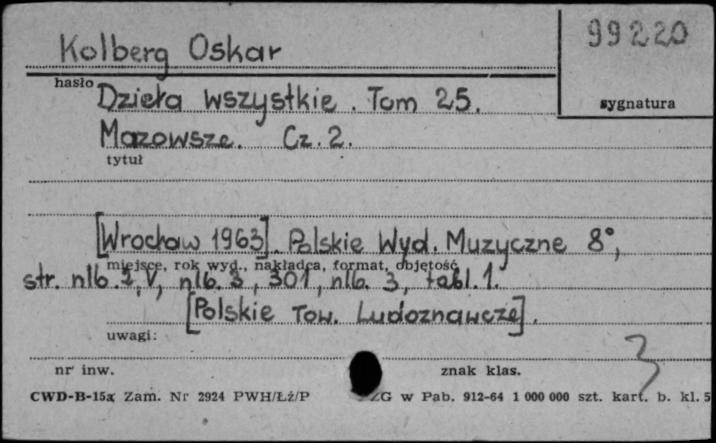 99220
Kolberg Oskar
hasło
sygnatura
Dzieła wszystkie. Tom 25.
Mazowsze. Cz. 2.
tytuł
[Wrocław 1963]. Polskie Wyd. Muzyczne 8°,
miejsce, rok wyd., nakładca, format, objętość
str. nlb. 1, V, nlb. 3, 301, nlb. 3, tabl. 1.
[Polskie Tow. Ludoznawcze].
uwagi:
3
nr inw.
znak klas.
CWD-B-15a Zam. Nr 2924 PWH/Łź/P ZG w Pab. 912-64 1 000 000 szt. kart. b. kl. 5